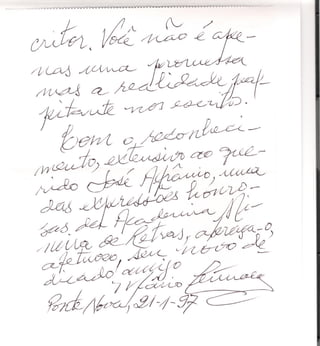 critor. Você não é ape-
nas uma promessa
mas a realidade pal-
pitante nos escrito.
Com o reconheci-
mento, extensivo ao que-
rido José Afrânio, uma
das expressões honro-
sas, da Academia Mi-
neira de Letras, abraça-o,
afetuoso, seu novo de-
dicado amigo
Mário
Ponte Nova, 21-1-97